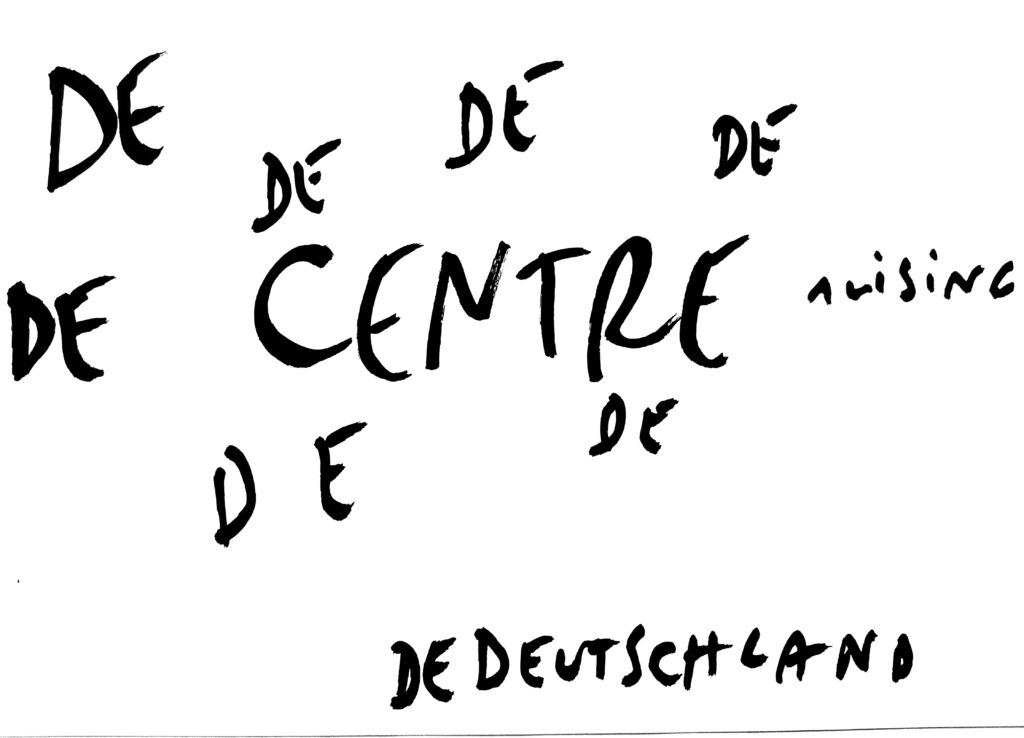 DE
DE
DE
DE
DE CENTRE ALISING
DE
DE
DEDEUTSCHLAND